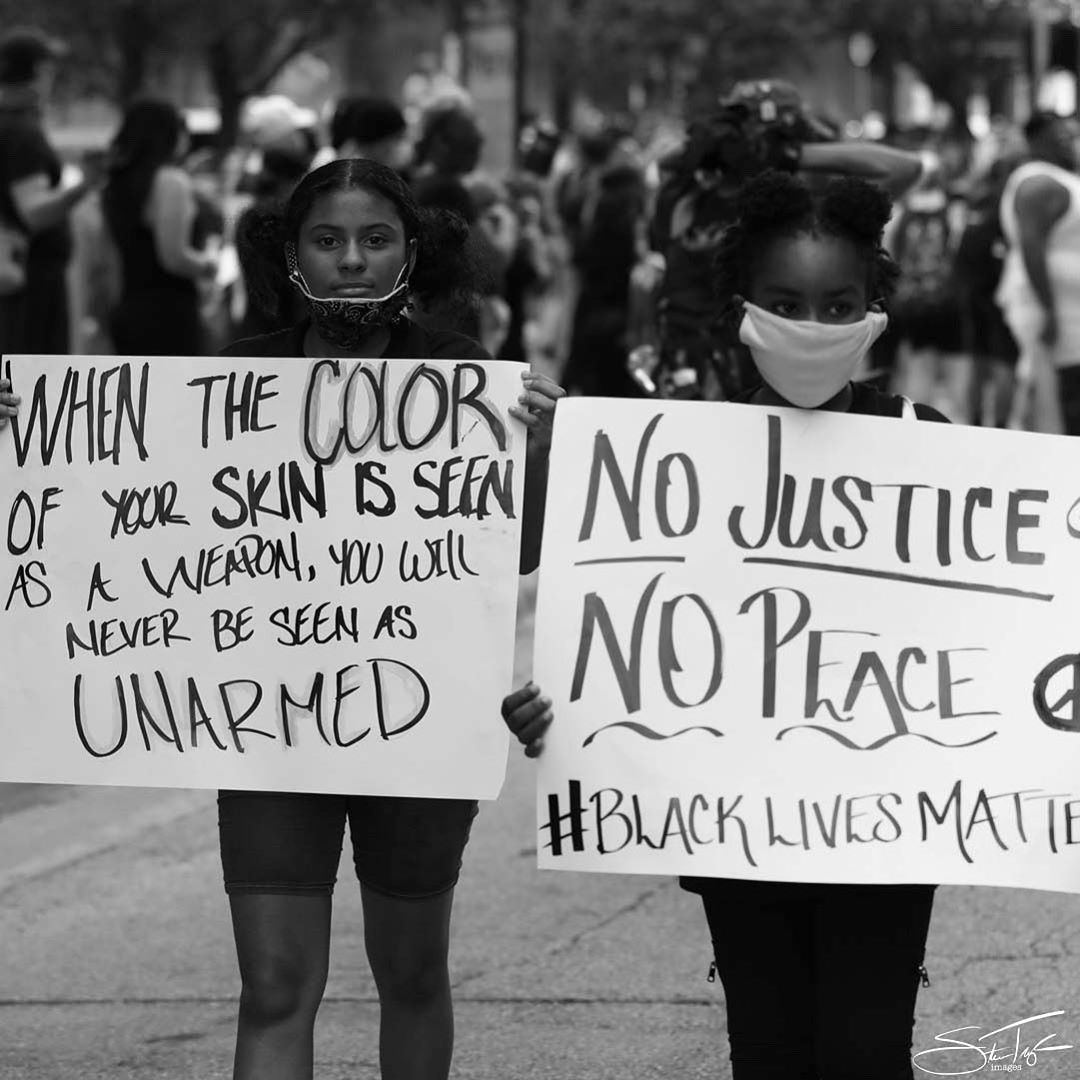 WHEN THE COLOR
OF YOUR SKIN IS SEEN
AS A WEAPON, YOU WILL
NEVER BE SEEN AS
UNARMED
NO JUSTICE
NO PEACE
#BLACK LIVES MATTE
images